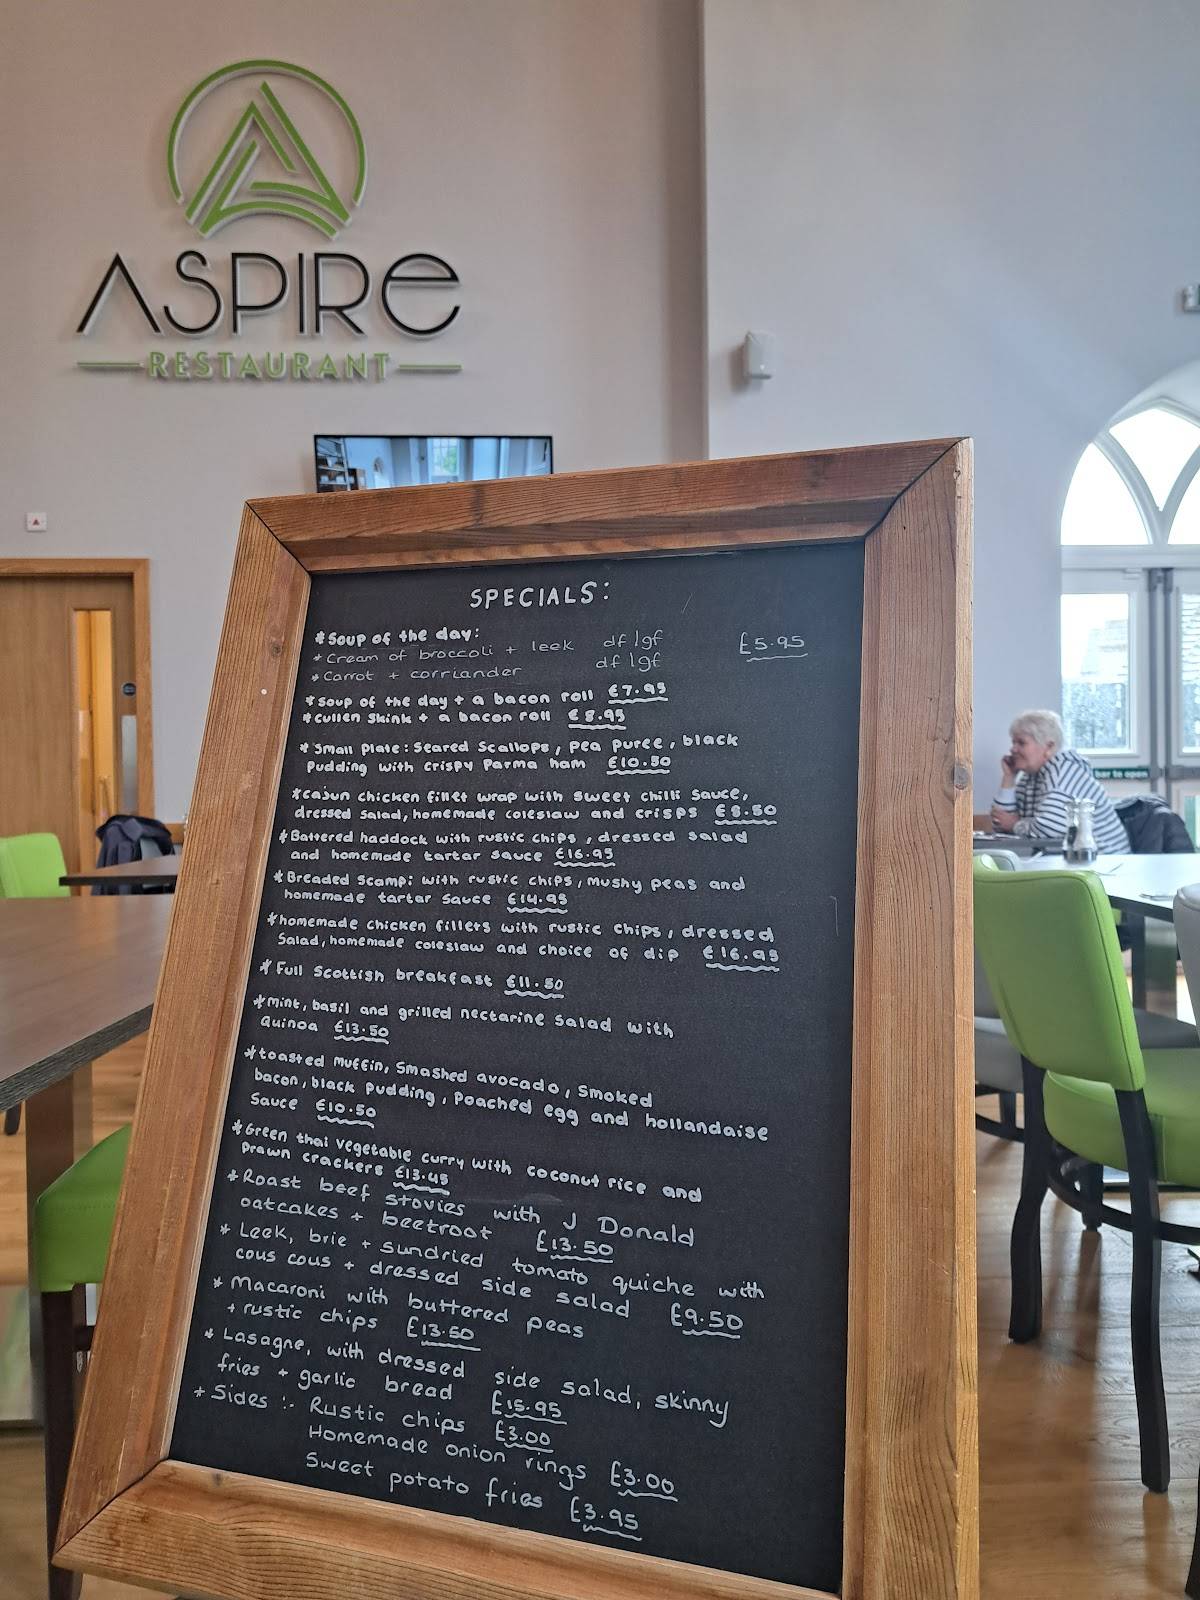 ASPIRE
RESTAURANT
SPECIALS:
* Soup of the day:
* Cream of broccoli + leek df/gf £5.95
* Carrot + corriander df/gf
* Soup of the day + a bacon roll £7.95
* Cullen Skink + a bacon roll £8.95
* Small Plate: Seared Scallops, pea puree, black
pudding with crispy Parma ham £10.50
* Cajun chicken fillet wrap with sweet chilli sauce,
dressed salad, homemade coleslaw and crisps £8.50
* Battered haddock with rustic chips, dressed salad
and homemade tartar sauce £16.95
* Breaded Scampi with rustic chips, mushy peas and
homemade tartar sauce £14.95
* homemade chicken fillets with rustic chips, dressed
Salad, homemade coleslaw and choice of dip £16.95
* Full Scottish breakfast £11.50
* mint, basil and grilled nectarine salad with
Quinoa £13.50
* toasted muffin, smashed avocado, smoked
bacon, black pudding, poached egg and hollandaise
Sauce £10.50
* Green thai vegetable curry with coconut rice and
prawn crackers £13.45
* Roast beef stovies with J Donald
oatcakes + beetroot £13.50
* Leek, brie + sundried tomato quiche with
cous cous + dressed side salad £9.50
* Macaroni with buttered peas
+ rustic chips £13.50
* Lasagne, with dressed side salad, skinny
fries + garlic bread £15.95
* Sides :- Rustic chips £3.00
Homemade onion rings £3.00
Sweet potato fries £3.95
bar to open